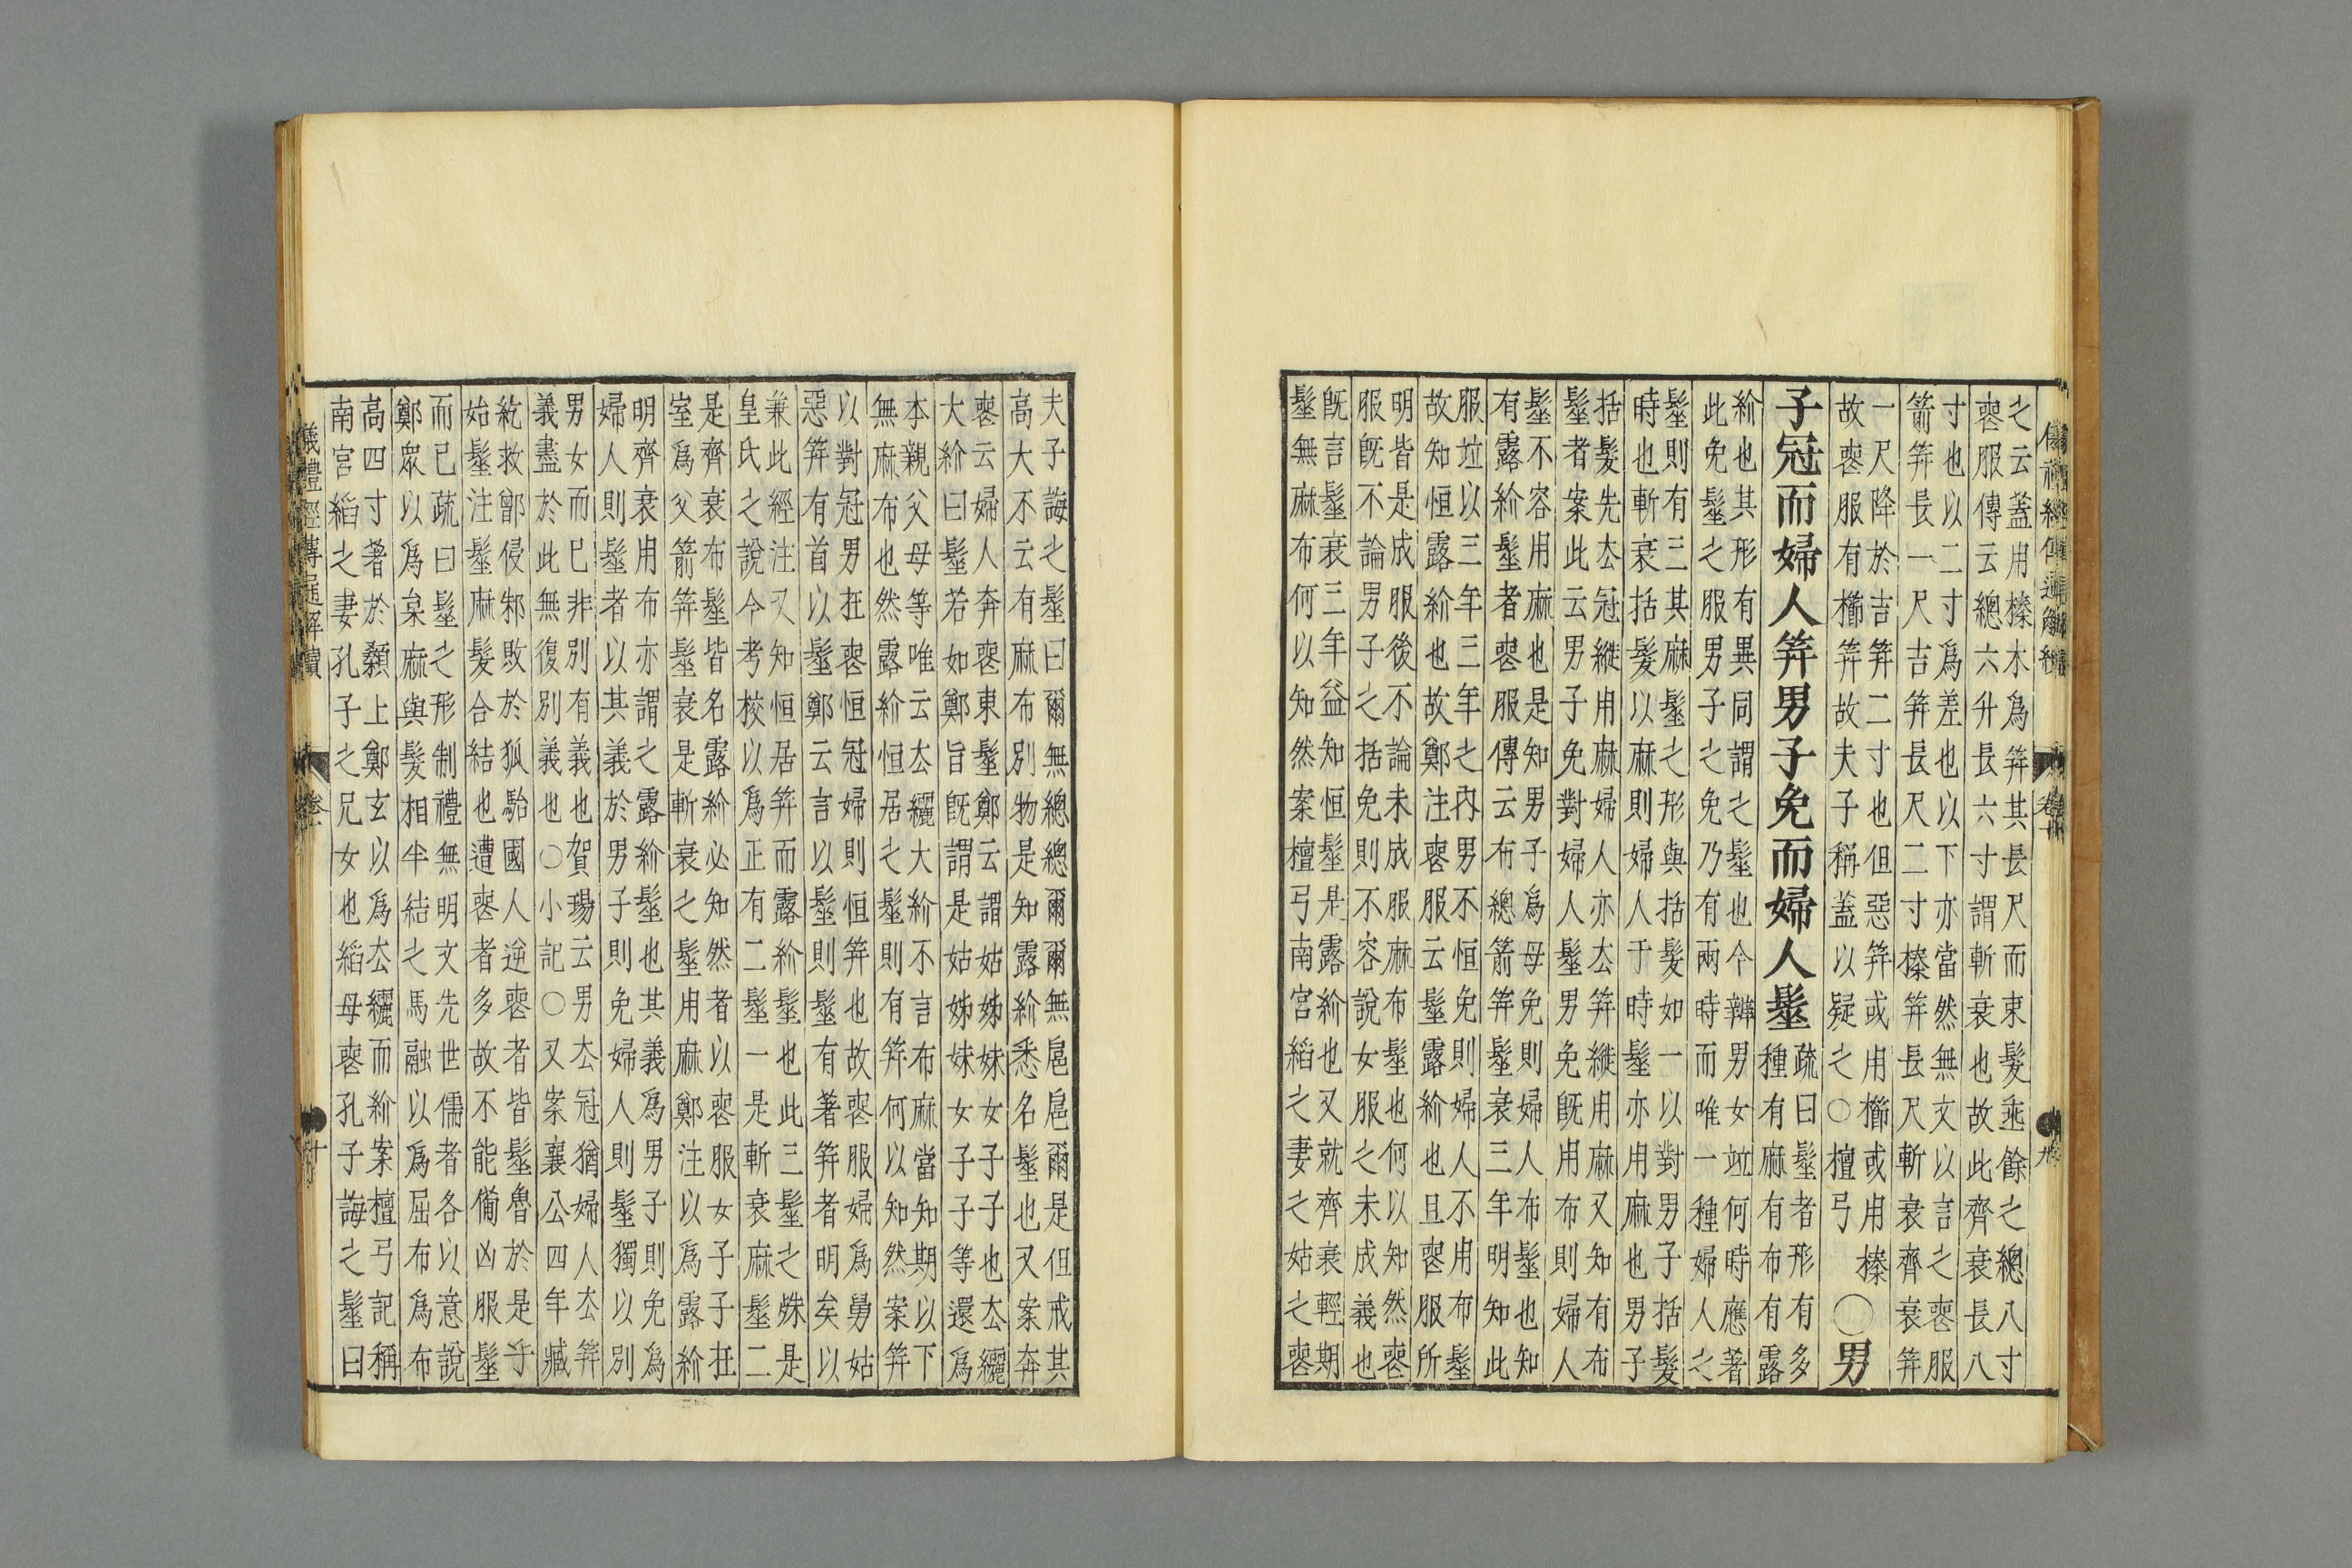 之云蓋用榛木爲筓其長尺而束髮埀餘之總八寸
喪服傳云總六升長六寸謂斬衰也故此齊衰長八
寸也以二寸爲差也以下亦當然無文以言之喪服
箭筓長一尺吉筓長尺二寸榛筓長尺斬衰齊衰筓
一尺降於吉筓二寸也但惡筓或用櫛或用榛
故喪服有櫛筓故夫子稱蓋以疑之〇檀弓
〇男
子冠而婦人筓男子免而婦人髽
疏曰髽者形有多
種有麻有布有露
紒也其形有異同謂之髽也今辨男女竝何時應著
此免髽之服男子之免乃有兩時而唯一種婦人之
髽則有三其麻髽之形與括髮如一以對男子括髮
時也斬衰括髮以麻則婦人于時髽亦用麻也男子
括髮先去冠縰用麻婦人亦去筓縰用麻又知有布
髽者案此云男子免對婦人髽男免旣用布則婦人
髽不容用麻也是知男子爲母免則婦人布髽也知
有露紒髽者喪服傳云布總箭筓髽衰三年明知此
服竝以三年三年之內男不恒免則婦人不用布髽
故知恒露紒也故鄭注喪服云髽露紒也且喪服所
明皆是成服後不論未成服麻布髽也何以知然喪
服旣不論男子之括免則不容說女服之未成義也
旣言髽衰三年益知恒髽是露紒也又就齊衰輕期
髽無麻布何以知然案檀弓南宮縚之妻之姑之喪
夫子誨之髽曰爾無總總爾爾無扈扈爾是但戒其
高大不云有麻布別物是知露紒悉名髽也又案奔
喪云婦人奔喪東髽鄭云謂姑姊妹女子子也去纚
大紒曰髽若如鄭旨旣謂是姑姊妹女子子等還爲
本親父母等唯云去纚大紒不言布麻當知期以下
無麻布也然露紒恒居之髽則有筓何以知然案筓
以對冠男在喪恒冠婦則恒筓也故喪服婦爲舅姑
惡筓有首以髽鄭云言以髽則髽有著筓者明矣以
兼此經注又知恒居筓而露紒髽也此三髽之殊是
皇氏之說今考校以爲正有二髽一是斬衰麻髽二
是齊衰布髽皆名露紒必知然者以喪服女子子在
室爲父箭筓髽衰是斬衰之髽用麻鄭注以爲露紒
明齊衰用布亦謂之露紒髽也其義爲男子則免爲
婦人則髽者以其義於男子則免婦人則髽獨以別
男女而已非別有義也賀瑒云男去冠猶婦人去筓
義盡於此無復別義也〇小記〇又案襄公四年臧
紇救鄫侵邾敗於狐駘國人逆喪者皆髽魯於是乎
始髽注髽麻髮合結也遭喪者多故不能備凶服髽
而已疏曰髽之形制禮無明文先世儒者各以意說
鄭眾以爲枲麻與髮相半結之馬融以爲屈布爲布
高四寸著於顙上鄭玄以爲去纚而紒案檀弓記稱
南宮縚之妻孔子之兄女也縚母喪孔子誨之髽曰
儀禮經傳通解續
卷
十